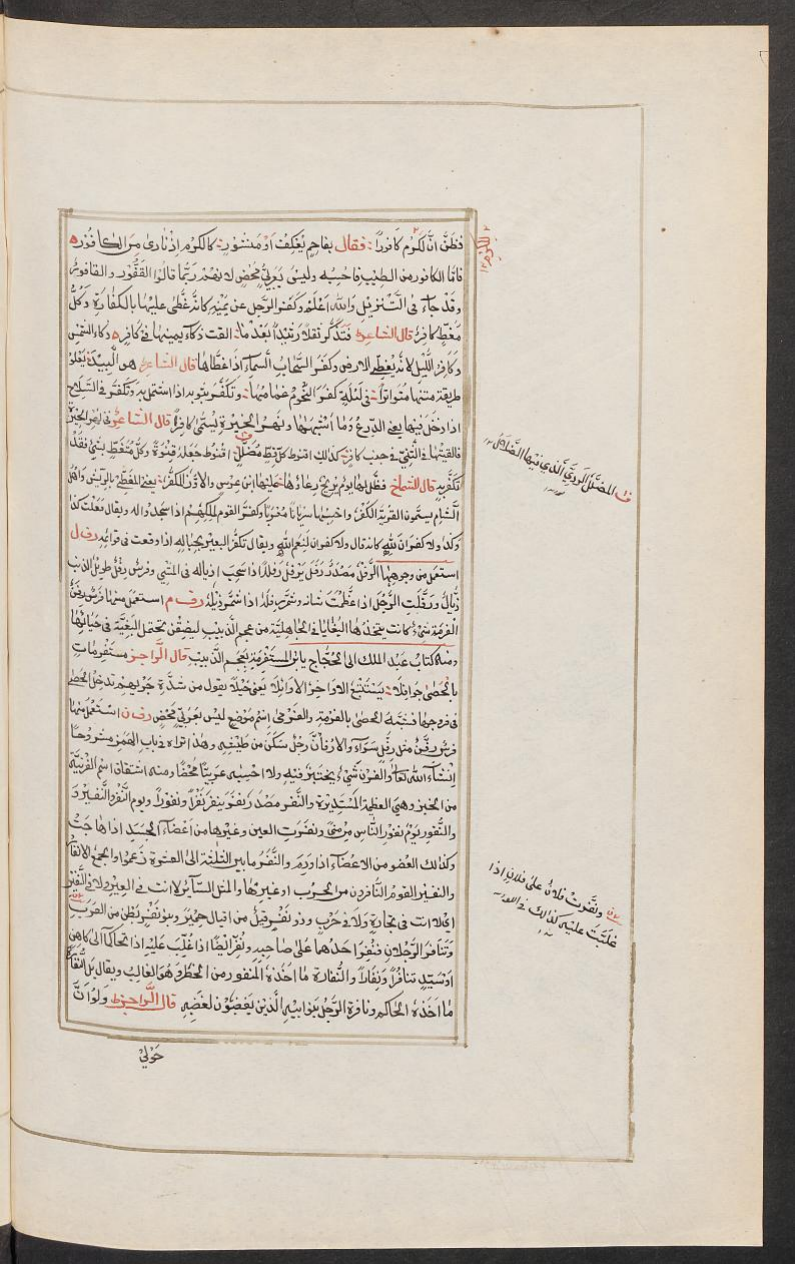 فظن ان الكرم كافورا فقال بفاحم يعكف او منشور كالكرم اذ نادى من الكافور
فاما الكافور من الطيب فاحسبه وليس بعربي محض لانهم ربما قالوا القفور والقافور
وقد جاء فى التنزيل والله اعلم وكفر الرجل عن يمينه كانه غطى عليها بالكفارة وكل
مغط كافر قال الشاعر فتذكرا ثقلا رثيدا بعد ما القت ذكاء يمينها فى كافر ذكاء الشمس
وكافر الليل لانه يغطى الارض وكفر السحاب السماء اذا غطاها قال الشاعر يعلو
طريقة متنها متواتر فى ليلة كفر النجوم غمامها وتكفر بثوبه اذا اشتمل به وتكفر فى السلاح
اذا دخل فيها يعنى الدرع وما اشبهها ونهر الحيرة يسمى كافرا قال الشاعر
فالقيتها فى الثنى من جنب كافر كذلك اقنو كل قط مضلل وكل متغط بشئ فقد
تكفر به قال الشماخ
الشام يسمون القرية الكفر واحسبها سريانا معربا وكفر القوم لملكهم اذا سجدوا له ويقال فعلت كذا
وكذا ولا كفران لله كانه قال ولا كفران لنعم الله ويقال تكفر البعير بحباله اذا وقعت فى قوائمه ر ف ل
استعمل من وجوهها الرفل مصدر رفل يرفل رفلا اذا سحب اذياله فى المشى وفرس رفل طويل الذنب
ذيال ورفلت الرجل اذا عظمت شانه وشمر رفله اذا شمر ذيله ر ف م استعمل منها
الفرمة شئ كانت يتخذها البغايا فى الجاهلية من عجم الزبيب ليضقن
ومنه كتاب عبد الملك الى الحجاج يابن المستفرمة بعجم الزبيب قال الراجز مستفرمات
بالحصى جوافلا يستتبع الاواخر الاوائلا يعنى خيلا يقول من شدة جريهن يدخل الحصى
فى فروجها فشبه الحصى بالفرمة والفرمى اسم موضع ليس بعربى محض ر ف ن استعمل منها
فرس رفن مثل رفل سواء وارفان رجل سكن من طيشه وهذا تراه فى باب الهمز مشروحا
انشاء الله تعالى والفرن شئ يختبز فيه ولا احسبه عربيا محضا ومنه اشتقاق اسم الفرنية
من الخبز وهى العظيمة المستديرة والنفر مصدر نفر ينفر نفرا ونفورا ويوم النفر والنفير
والنفور يوم نفور الناس من منى ونفرت العين وغيرها من اعضاء الجسد اذا هاجت
وكذلك العضو من الاعضاء اذا ورم والنفر ما بين الثلثة الى العشرة زعموا والجمع الانفار
والنفير القوم النافرون من الحرب او غيرها والمثل السائر لا انت فى العير ولا فى النفير
اى لا انت فى تجارة ولا فى حرب وذو نفر قيل من اقيال حمير وبنو نفر بطن من العرب
وتنافر الرجلان فنفر احدهما على صاحبه ونفر ايضا اذا غلب عليه اذا تحاكما الى كاهن
او سيد تنافرا ونفارا والنفارة ما اخذه المنفور من الخطر وهو الغالب ويقال بل النفارة
ما اخذه الحاكم ونافرة الرجل بنو ابيه الذين يغضبون لغضبه قال الراجز ولو ان
حولى
المضلل الردى الذى فيها الضلال
ونفرت فلان على فلان اذا
غلبت عليه كذلك